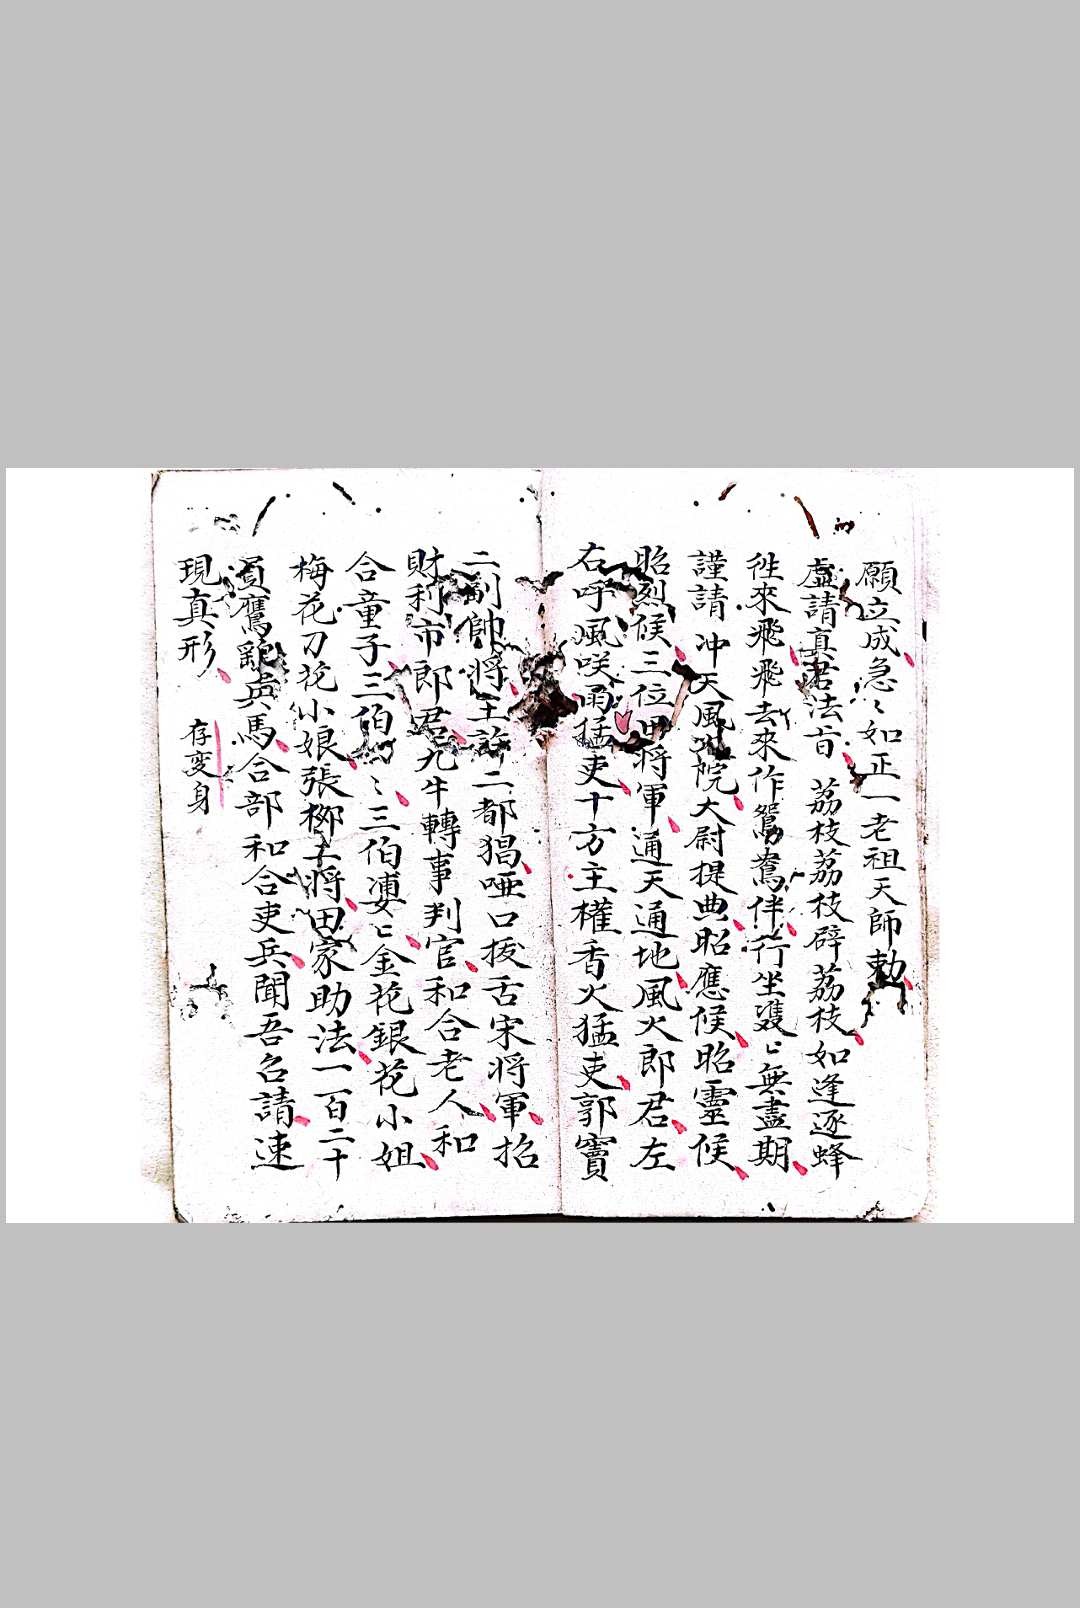 願立成急〻如正一老祖天師勅
虛請真君法旨荔枝荔枝辟荔枝如逢逐蜂
徃來飛飛去來作鴛鴦伴行坐〻無盡期
謹請冲天風院大尉提典昭應候昭靈候
昭烈候三位田將軍通天通地風火郎君左
右呼風咲雨猛吏十方主權香火猛吏郭竇
二副帥將王許二都猖啞口拔舌宋將軍招
財利市郎君九牛轉事判官和合老人和
合童子三伯〻三伯婆〻金花銀花小姐
梅花刀花小娘張柳二將田家助法一百二十
鷹鷄兵馬合部和合吏兵聞吾名請速
現真形
存变身